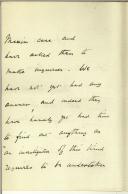 Maxim case and
have asked them to
make inquiries. We
have not yet had any
answer, and indeed they
have hardly yet had time
to find out anything as
an investigation of this kind
requires to be undertaken